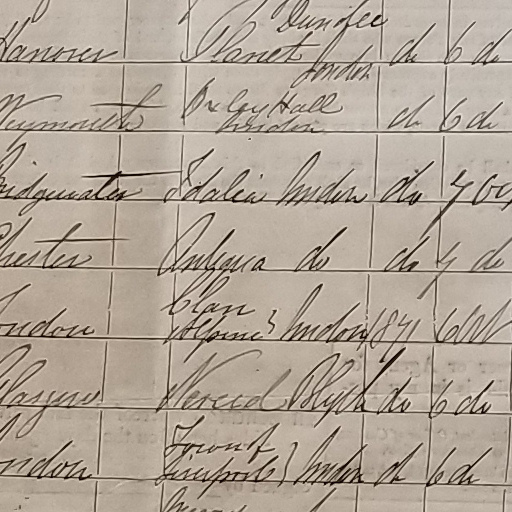 Dundee
Hanover Planet London do 6 do
Weymouth Oxley Hall London do 6 do
Bridgewater Idalia London do 7
Chester Antigua do do 7 do
London Clan Alpine } London 1871 6
Glasgow Nereid Blyth do 6 do
London Town of Liverpool } London do 6 do